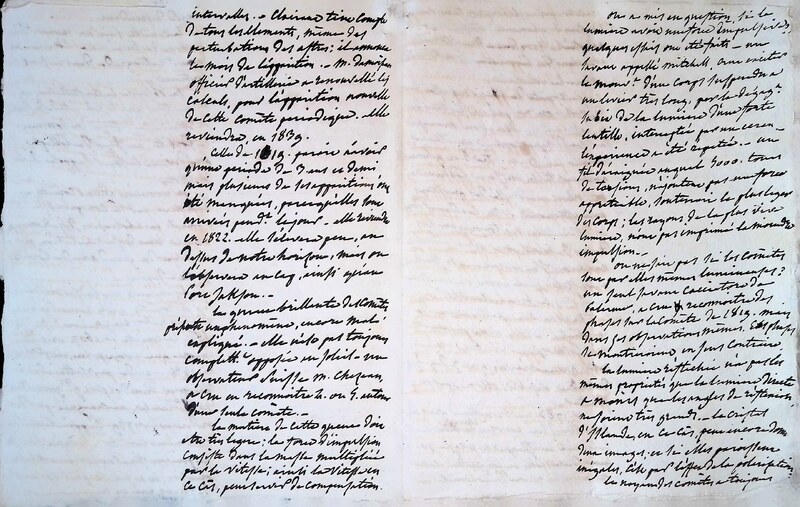 intervalles. - Clairaut tint Compte
de tous les Elements, même des
perturbations des astres: il annonca
le mois de l'apparition. - M. damoiseau
officier d'artillerie a renouvellé les
calculs, pour l'apparition nouvelle
de cette Comète periodique. elle
reviendra, en 1839.
Celle de 1819. paroit n'avoir
qu'une periode de 3 ans et demi
mais plusieurs de ses apparitions ont
été manquées, parcequ'elles sont
arrivées pend.t le jour - elle reviendra
en 1822. elle s'elevera peu, au
dessus de notre horison, mais on
l'observera au Cap, ainsi qu'au
Port Jakson. -
la queue brillante des Comètes
est un phenomène, encore mal
expliqué. - elle n'est pas toujours
complett.t opposée au soleil - un
observateur Suisse M. Cheseau,
a cru en reconnoitre 4. ou 5. autour
d'une seule comète. -
la matiere de cette queue doit
etre très legère: la force d'impulsion
consiste dans la masse multipliée
par la vitesse; ainsi la vitesse en
ce cas, peut servir de compensation.
on a mis en question, si la
lumiere avoit une force impulsive:
quelques essais ont été faits - un
savant appellé mitchell, crut exciter
le mouv.t d'un Corps suspendu a
un levier très long, par le
subit de la lumiere d'une forte
lentille, interceptée par un ecran
l'experience a été repetée. - un
fil d'araignée auquel 3000. tours
de torsion, n'ajoutent pas une force
appretiable, soutenoit le plus leger
des Corps; les rayons de la plus vive
lumiere, n'ont pas imprimé la moindre
impulsion. -
on ne sait pas si les Comètes
sont par elles mêmes lumineuses?
un seul savant Cacciatore de
Palerme, a cru reconnoitre des
phases sur la Comète de 1819. mais
dans ses observations mêmes, ces phases
se montrerent en sens Contraire,
la lumiere reflechie n'a pas les
mêmes proprietés que la lumiere directe
a moins que les angles de reflexion,
ne soient très grands. - le cristal
d'Islande, en ce Cas, peut encore donner
deux images, et si elles paroissent
inégales, c'est par l'effet de la polarisation
le noyau des comètes a toujours